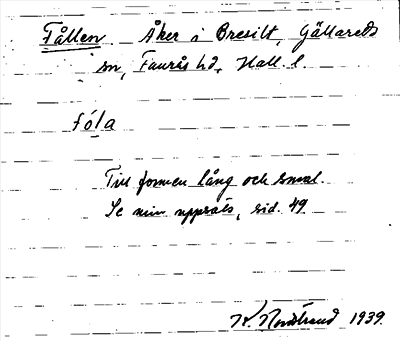 Fållen Åker å Bresilt, Gällareds
sn, Faurås hd, Hall. l.
fóla
Till formen lång och smal.
Se min uppsats, sid. 49
W. Nordstrand 1939.